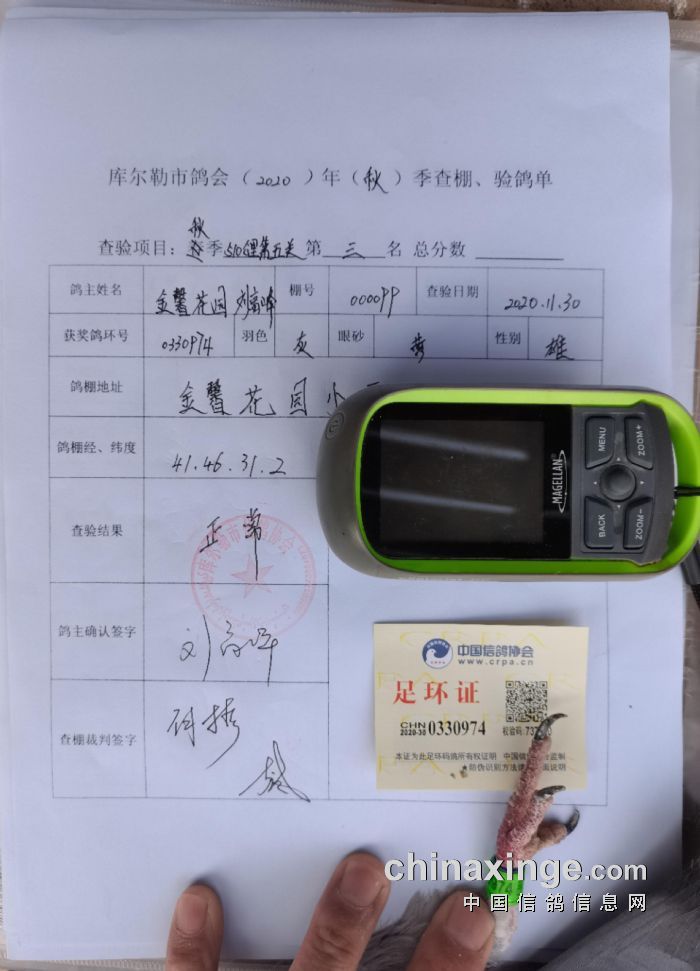 库尔勒市鸽会（2020）年（秋）季查棚、验鸽单
查验项目：秋季510公里第五关 第 三 名 总分数
鸽主姓名 金馨花园 刘富峰 棚号 000099 查验日期 2020.11.30
获奖鸽环号 0330974 羽色 灰 眼砂 黄 性别 雄
鸽棚地址 金馨花园小
鸽棚经、纬度 41.46.31.2
MAGELLAN
MENU
ZOOM+
BACK
ZOOM-
查验结果 正常
鸽主确认签字
查棚裁判签字
中国信鸽协会
www.crpa.cn
足环证
CHN 2020-30 0330974 校验码:
本证为此足环码鸽所有权证明 中国信鸽协会监制
★防伪识别方法
chinaxinge.com
中国信鸽信息网